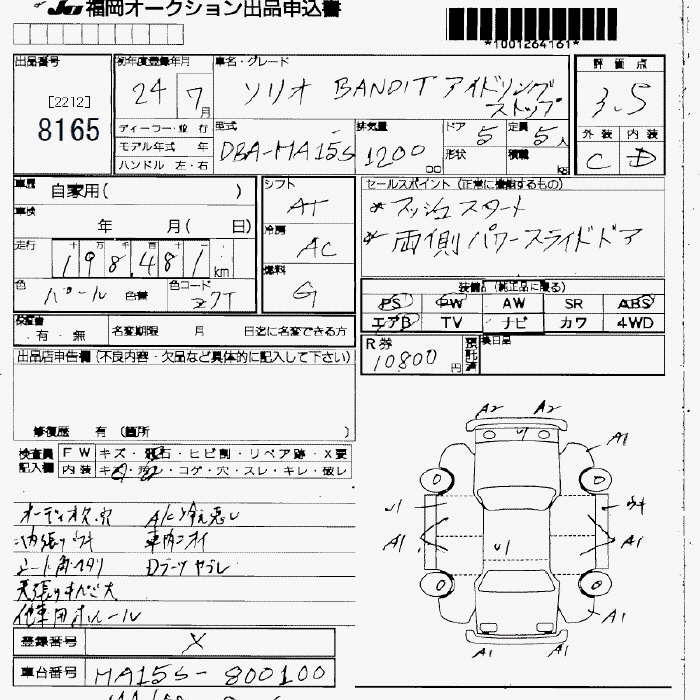 JU 福岡オークション出品申込書
*1001264161*
出品番号
[2212]
8165
初年度登録年月
24 7月
車名・グレード
ソリオ BANDIT アイドリング
ストップ
評価点
3.5
外装 内装
C D
ディーラー・並 行
モデル年式 年
ハンドル 左・右
型式
DBA-MA15S
排気量
1200 cc
ドア 5
形状
定員 5人
積載 kg
車歴
自家用( )
車検
年 月( 日)
走行
198,481 km
色
パール 色替
色コード
Z7T
シフト
AT
冷房
AC
燃料
G
セールスポイント(正常に機能するもの)
* プッシュスタート
* 両側パワースライドドア
装備(純正品に限る)
PS PW AW SR ABS
エアB TV ナビ カワ 4WD
保証書
有・無
名変期限 月 日迄に名変できる方
R券
10800円
預託済
出品店申告欄(不良内容・欠品など具体的に記入して下さい)
修復歴 有(箇所 )
検査員
記入欄
FW キズ・飛石・ヒビ割・リペア跡・X要
内装 キズ・汚レ・コゲ・穴・スレ・キレ・破レ
オーディオ欠.穴 A/C冷え悪し
内張りウキ 車内ニオイ
シート角ヘタリ Dブーツヤブレ
天張りキズ大
他車用ホイール
登録番号
X
車台番号
MA15S-800100
A2 A2
U1
A1
U1
ウキ
A1
U1
A1
A1
A1 A1